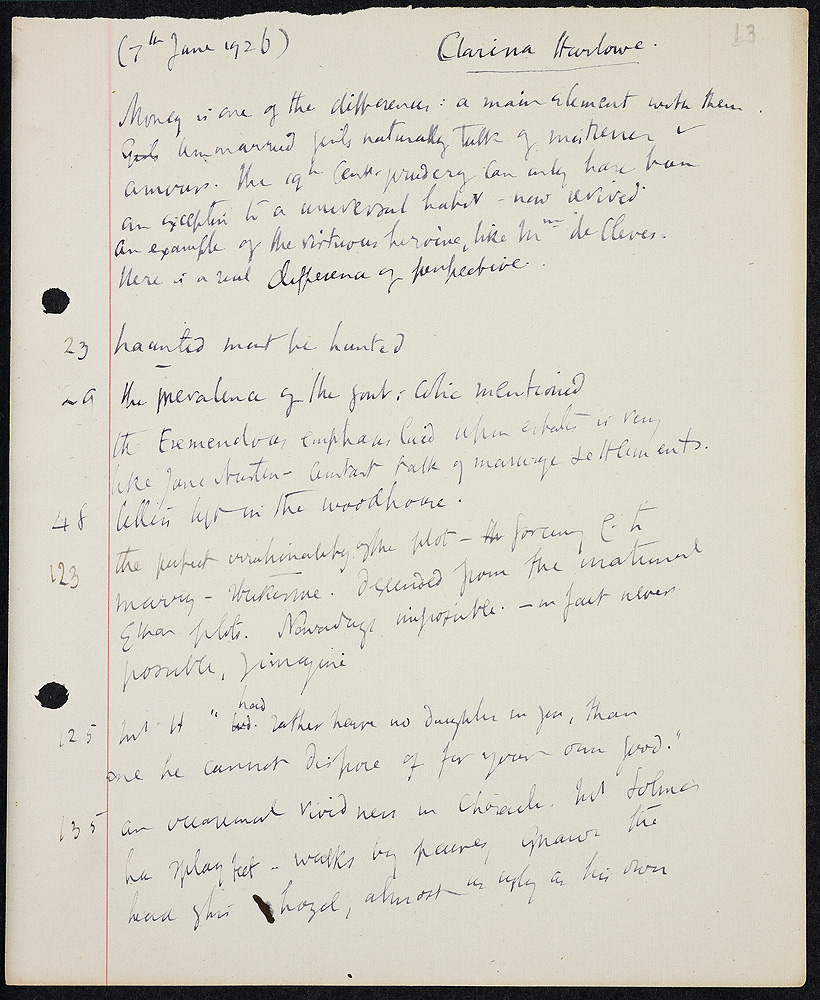 13
(7th June 1926) Clarissa Harlowe.
Money is one of the differences: a main element with them.
Girls Unmarried girls naturally talk of mistresses &
amours. The 19th Cent. prudery can only have been
an exception to a universal habit - now revived
an example of the virtuous heroine, like Mme de Cleves.
Here is a real difference of perspective.
23 haunted must be hunted
the prevalence of the gout: colic mentioned
the tremendous emphasis laid upon estates is very
like Jane Austen - constant talk of marriage settlements.
48 letters left in the woodhouse.
123 the perfect irrationality of the plot - the forcing C. to
marry - tiresome. Descended from the irrational
Ethan plots. Nowadays impossible. - in fact never
possible, I imagine
125 Mr H "had rather have no daughter in you, than
one he cannot dispose of for your own good."
135 an occasional vividness in character. Mr Solmes
has splay feet - walks by pauses, gnaws the
head of his hazel, almost as ugly as his own